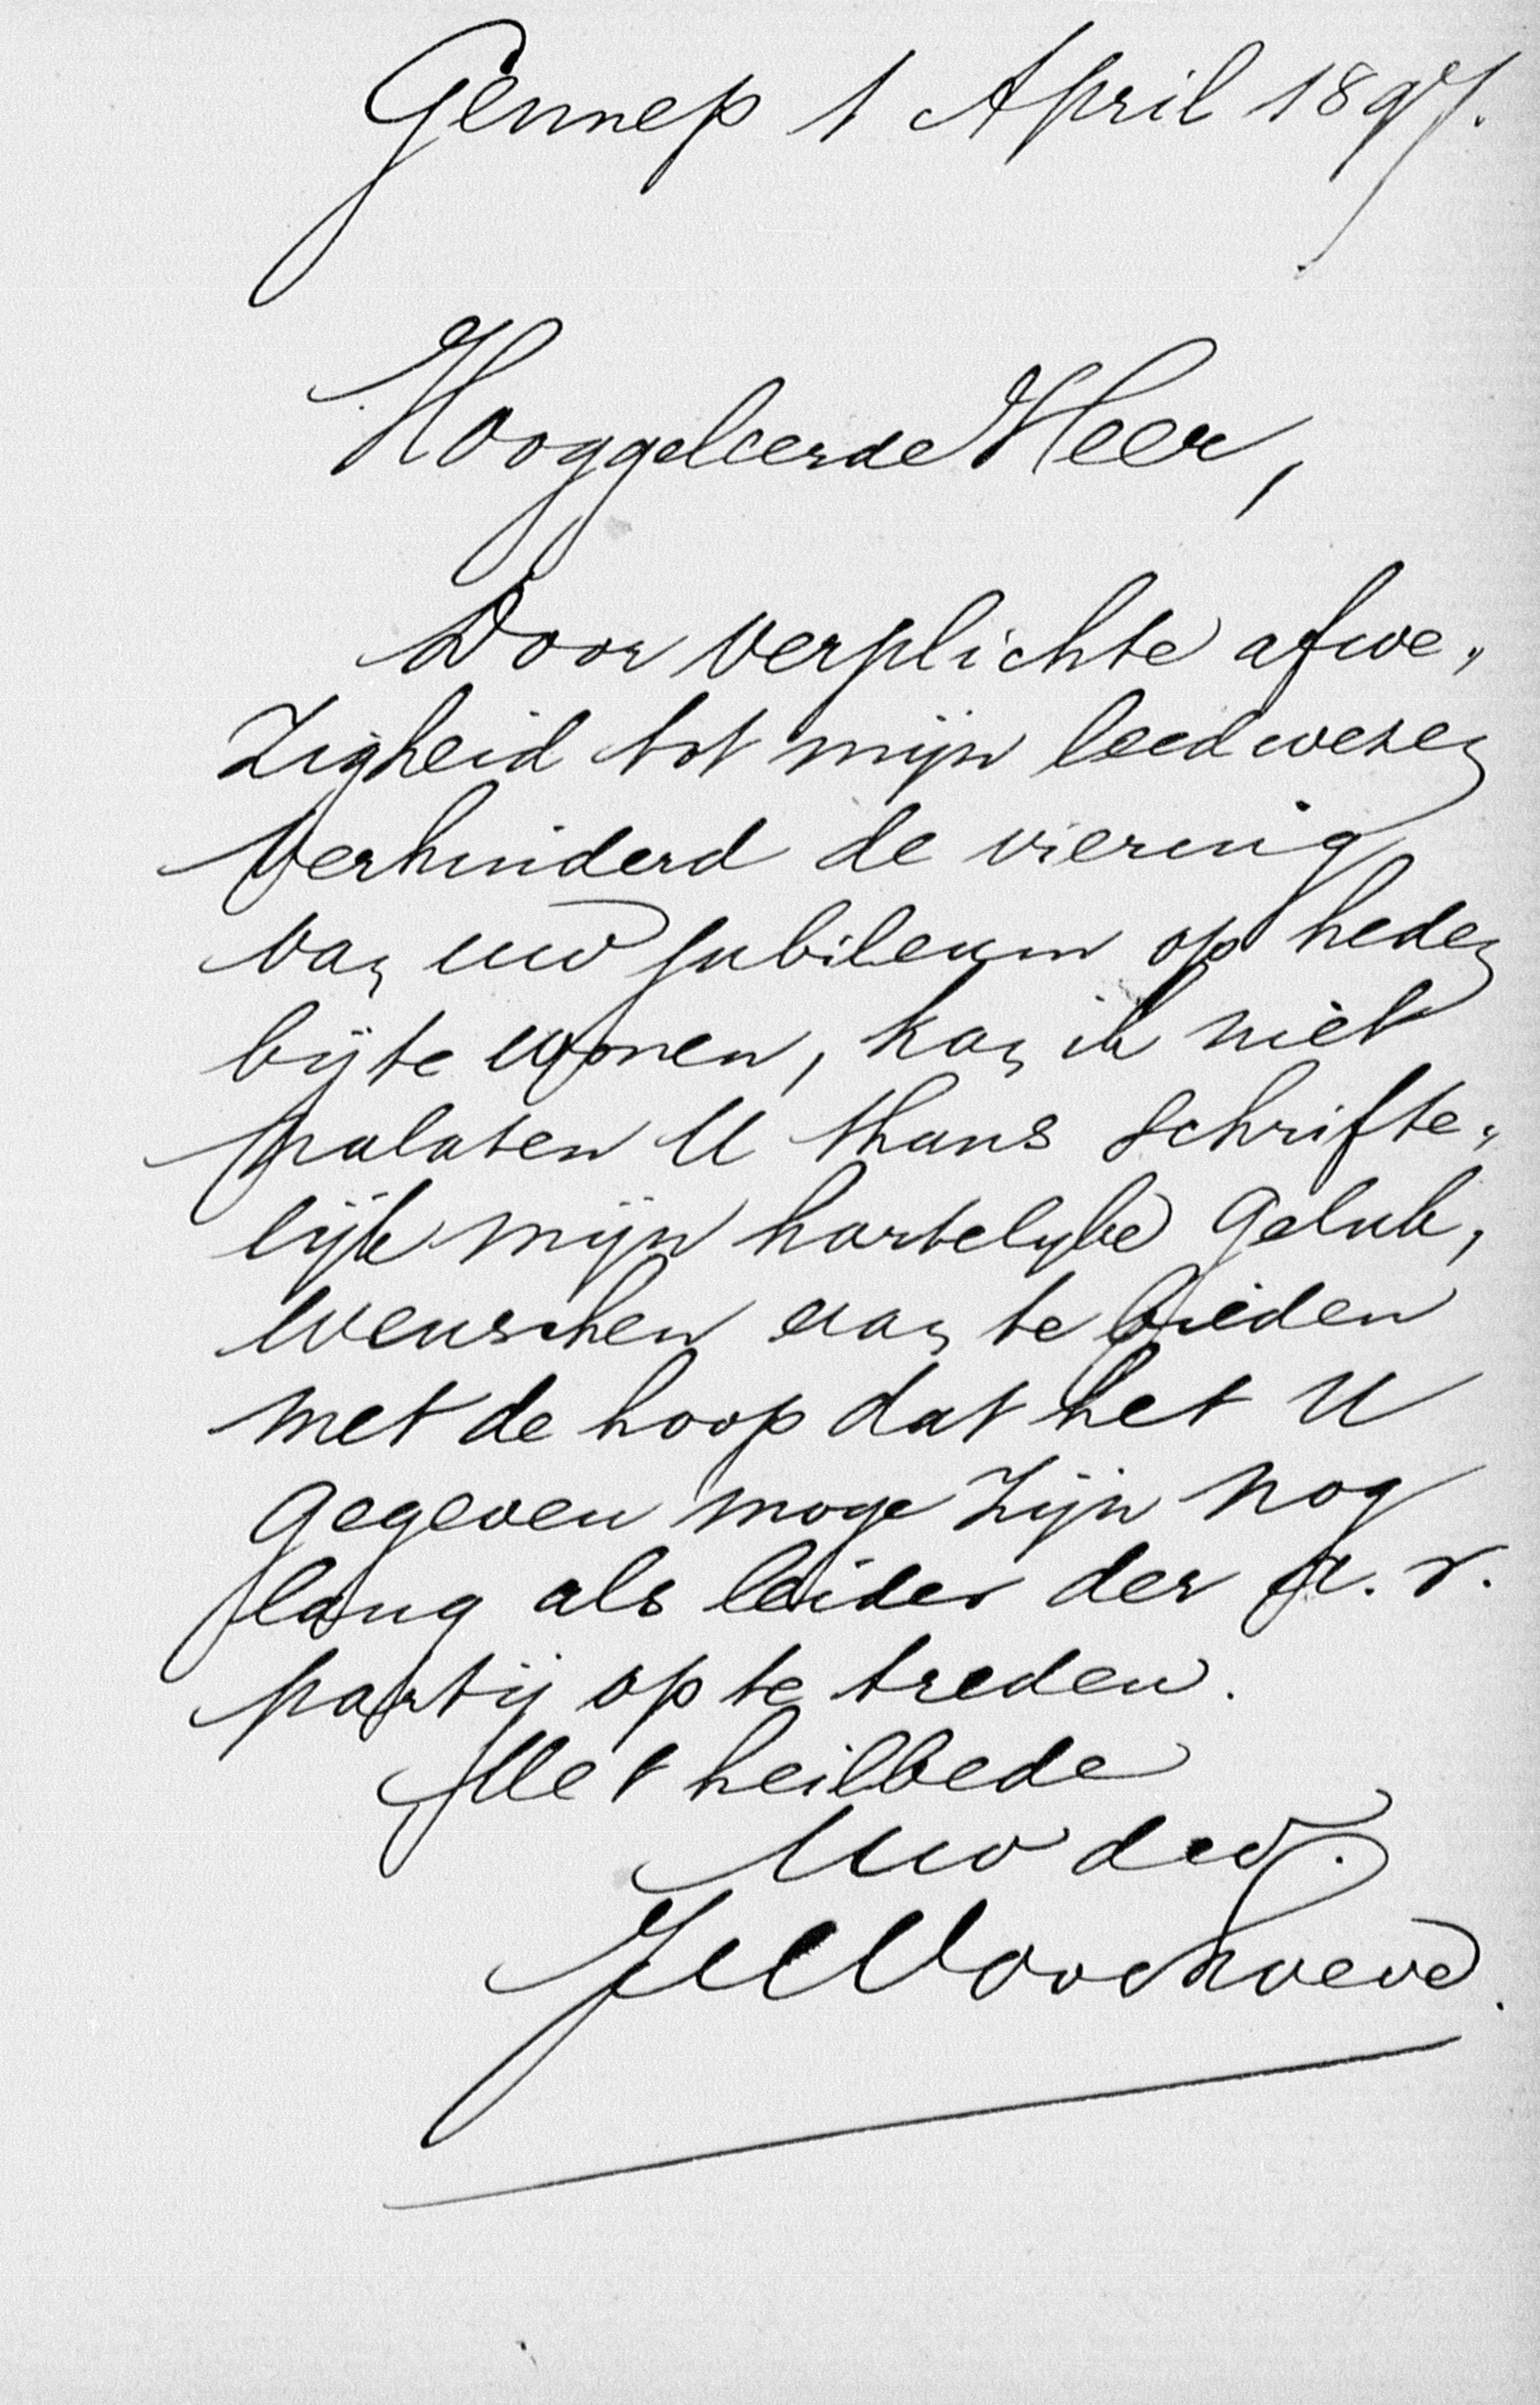 Gennep 1 April 1897.
Hooggeleerde Heer,
Door verplichte afwe„
zigheid tot mijn leedwezen
verhinderd de viering
van uw jubileum op heden
bij te wonen, kan ik niet
nalaten U thans schrifte„
lijk mijn hartelijke geluk,
wenschen aan te bieden
met de hoop dat het U
gegeven moge zijn nog
lang als leider der a. r.
partij op te treden.
Met heilbede
Uw dw.